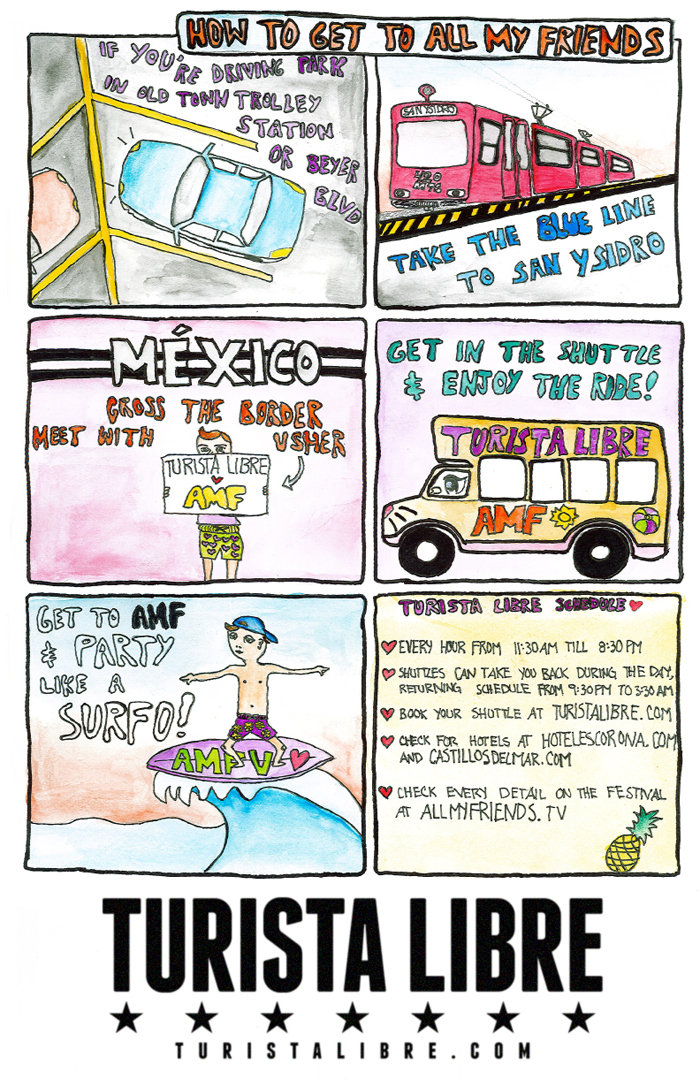 HOW TO GET TO ALL MY FRIENDS
IF YOU'RE DRIVING PARK
IN OLD TOWN TROLLEY
STATION
OR BEYER
BLVD
SAN YSIDRO
TAKE THE BLUE LINE
TO SAN YSIDRO
MÉXICO
CROSS THE BORDER
MEET WITH USHER
TURISTA LIBRE
AMF
GET IN THE SHUTTLE
& ENJOY THE RIDE!
TURISTA LIBRE
AMF
GET TO AMF
& PARTY
LIKE A
SURFO!
AMF V
TURISTA LIBRE SCHEDULE
EVERY HOUR FROM 11:30AM TILL 8:30PM
SHUTTLES CAN TAKE YOU BACK DURING THE DAY,
RETURNING SCHEDULE FROM 9:30PM TO 3:30AM
BOOK YOUR SHUTTLE AT TURISTALIBRE.COM
CHECK FOR HOTELS AT HOTELESCORONA.COM
AND CASTILLOSDELMAR.COM
CHECK EVERY DETAIL ON THE FESTIVAL
AT ALLMYFRIENDS.TV
TURISTA LIBRE
TURISTALIBRE.COM